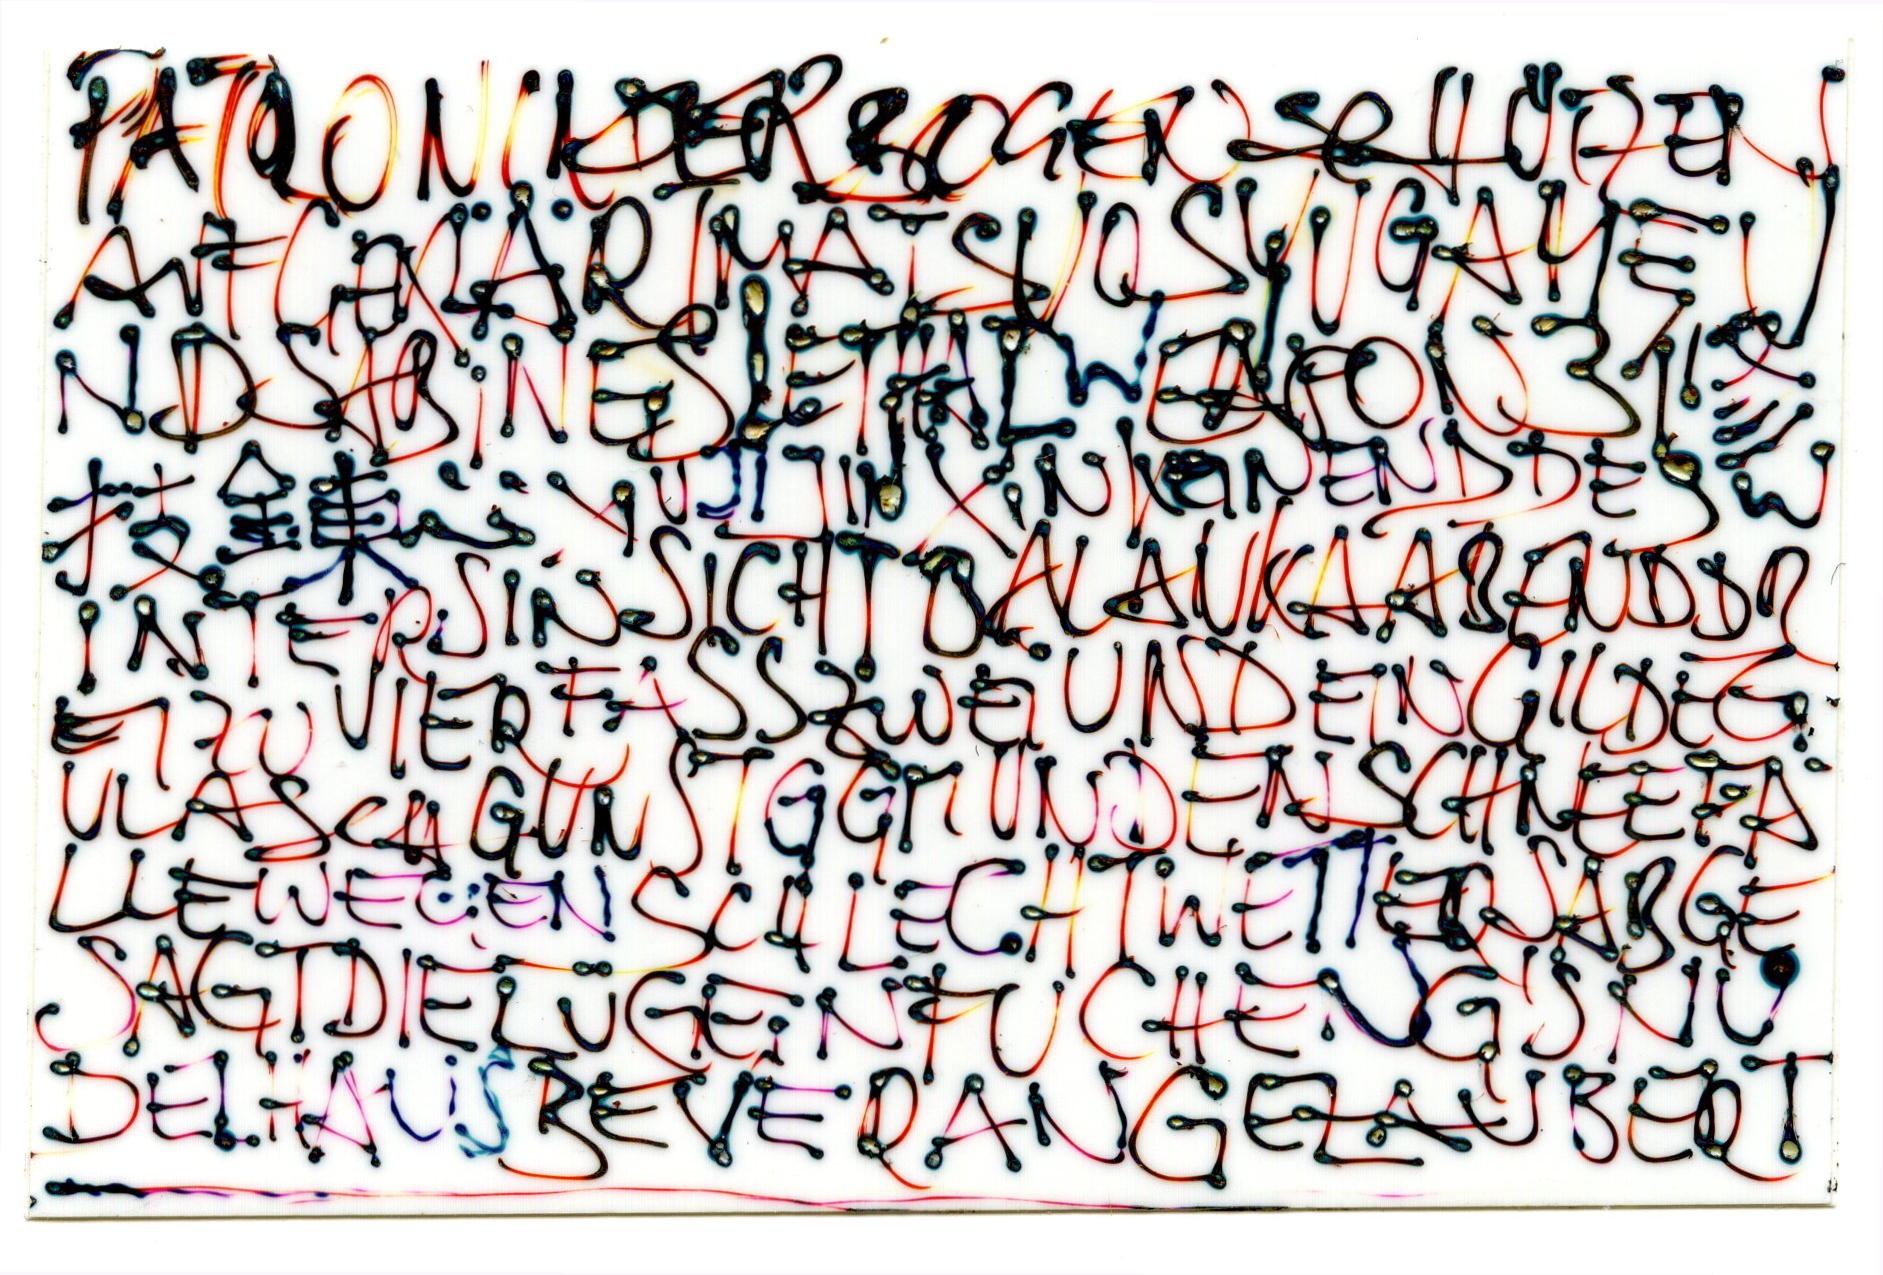 PATRONIN DER BOGENSCHÜTZEN
ANFGNÄR MATSUOSYUGAYEU
ND SABINES LETAL WEAPON 3 形
技 錬 心 YUJINXIN KEIN END DES W
INTERS IN SICHT BALANKA ABEND DR
EI ZU VIER FASS ZWEI UND EN GILDEG
ULASCH GUNSTGGMUNDEN SCHNEEFÄ
LLE WEGEN SCHLECHTWETTERS ABGE
SAGT DIE LUGEN FUCHENG'S NU
DELHAUS BEVERAN GELAUBERT